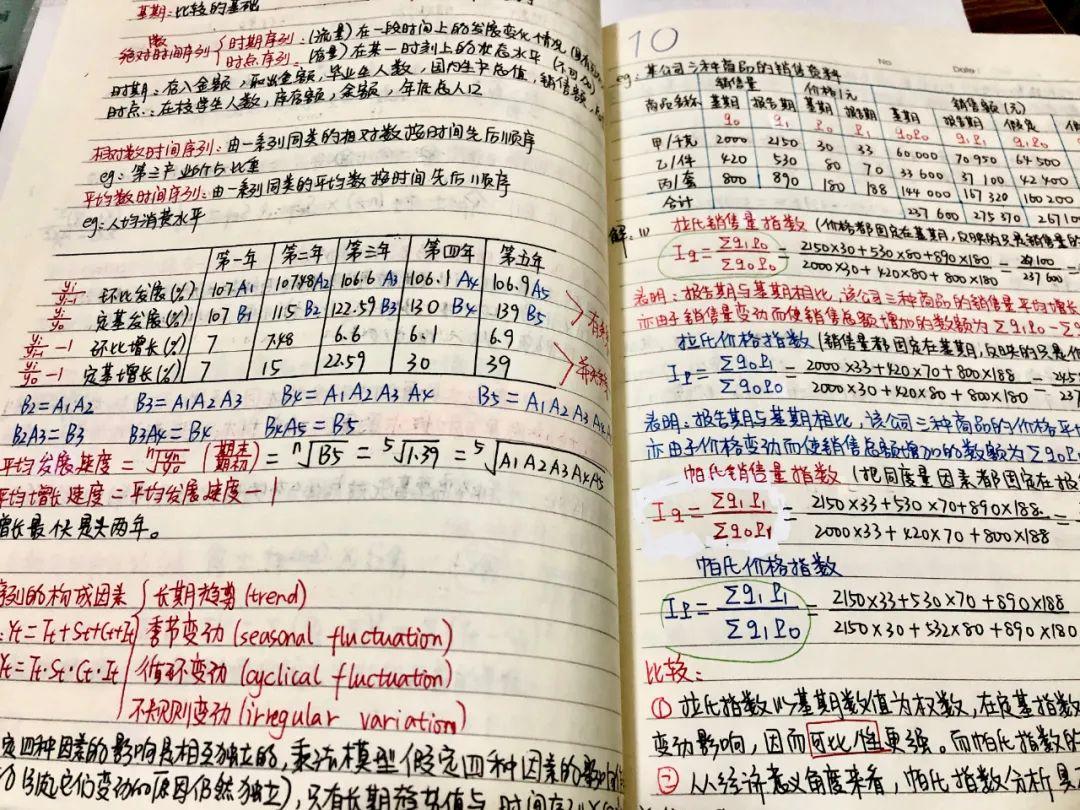 基期：比较的基础
绝对数时间序列
时期序列：(流量)在一段时间上的发展变化情况
时点序列：(存量)在某一时刻上的状态水平 (不可加)
时期：存入金额，取出金额，毕业生人数，国内生产总值，销售额，
时点：在校学生人数，库存额，余额，年底总人口
相对数时间序列：由一系列同类的相对数按时间先后顺序
eg：第三产业所占比重
平均数时间序列：由一系列同类的平均数按时间先后顺序
eg：人均消费水平
第一年 第二年 第三年 第四年 第五年
环比发展(%) 107 A1 107.48 A2 106.6 A3 106.1 A4 106.9 A5
定基发展(%) 107 B1 115 B2 122.59 B3 130 B4 139 B5
环比增长(%) 7 7.48 6.6 6.1 6.9
定基增长(%) 7 15 22.59 30 39
B2=A1A2 B3=A1A2A3 B4=A1A2A3A4 B5=A1A2A3A4A5
B2A3=B3 B3A4=B4 B4A5=B5
平均发展速度=ⁿ√(yn/y0) (期末/期初)=ⁿ√B5=⁵√1.39=⁵√A1A2A3A4A5
平均增长速度=平均发展速度-1
增长最快是头两年。
序列的构成因素
长期趋势(trend)
Yt=Tt+St+Ct+It 季节变动(seasonal fluctuation)
Yt=Tt·St·Ct·It 循环变动(cyclical fluctuation)
不规则变动(irregular variation)
定四种因素的影响是相互独立的，乘法模型假定四种因素的影响
它们变动的原因仍然独立)，只有长期趋势值与时间序列
10
No Date
eg：某公司三种商品的销售资料
商品名称 销售量 价格/元 销售额(元)
基期 报告期 基期 报告期 基期 报告期 假定
q0 q1 P0 P1 q0P0 q1P1 q1P0
甲/千克 2000 2150 30 33 60 000 70 950 64 500
乙/件 420 530 80 70 33 600 37 100 42 400
丙/套 800 890 180 188 144 000 167 320 160 200
合计 237 600 275 370 26710
解：(1) 拉氏销售量指数 (价格都固定在基期，反映的只是销售量的
Iq=Σq1P0/Σq0P0=(2150×30+530×80+890×180)/(2000×30+420×80+800×180)=
表明：报告期与基期相比，该公司三种商品的销售量平均增长
亦由于销售量变动而使销售总额增加的数额为Σq1P0-Σq
拉氏价格指数 (销售量都固定在基期，反映的只是价
IP=Σq0P1/Σq0P0=(2000×33+420×70+800×188)/(2000×30+420×80+800×180)=
表明：报告期与基期相比，该公司三种商品的价格平
亦由于价格变动而使销售总额增加的数额为Σq0P
帕氏销售量指数 (把同度量因素都固定在报
Iq=Σq1P1/Σq0P1=(2150×33+530×70+890×188)/(2000×33+420×70+800×188)=
帕氏价格指数
IP=Σq1P1/Σq1P0=(2150×33+530×70+890×188)/(2150×30+532×80+890×180)
比较：
① 拉氏指数以基期数值为权数，在定基指数
变动影响，因而可比性更强。而帕氏指数的
② 从经济意义角度来看，帕氏指数分析具